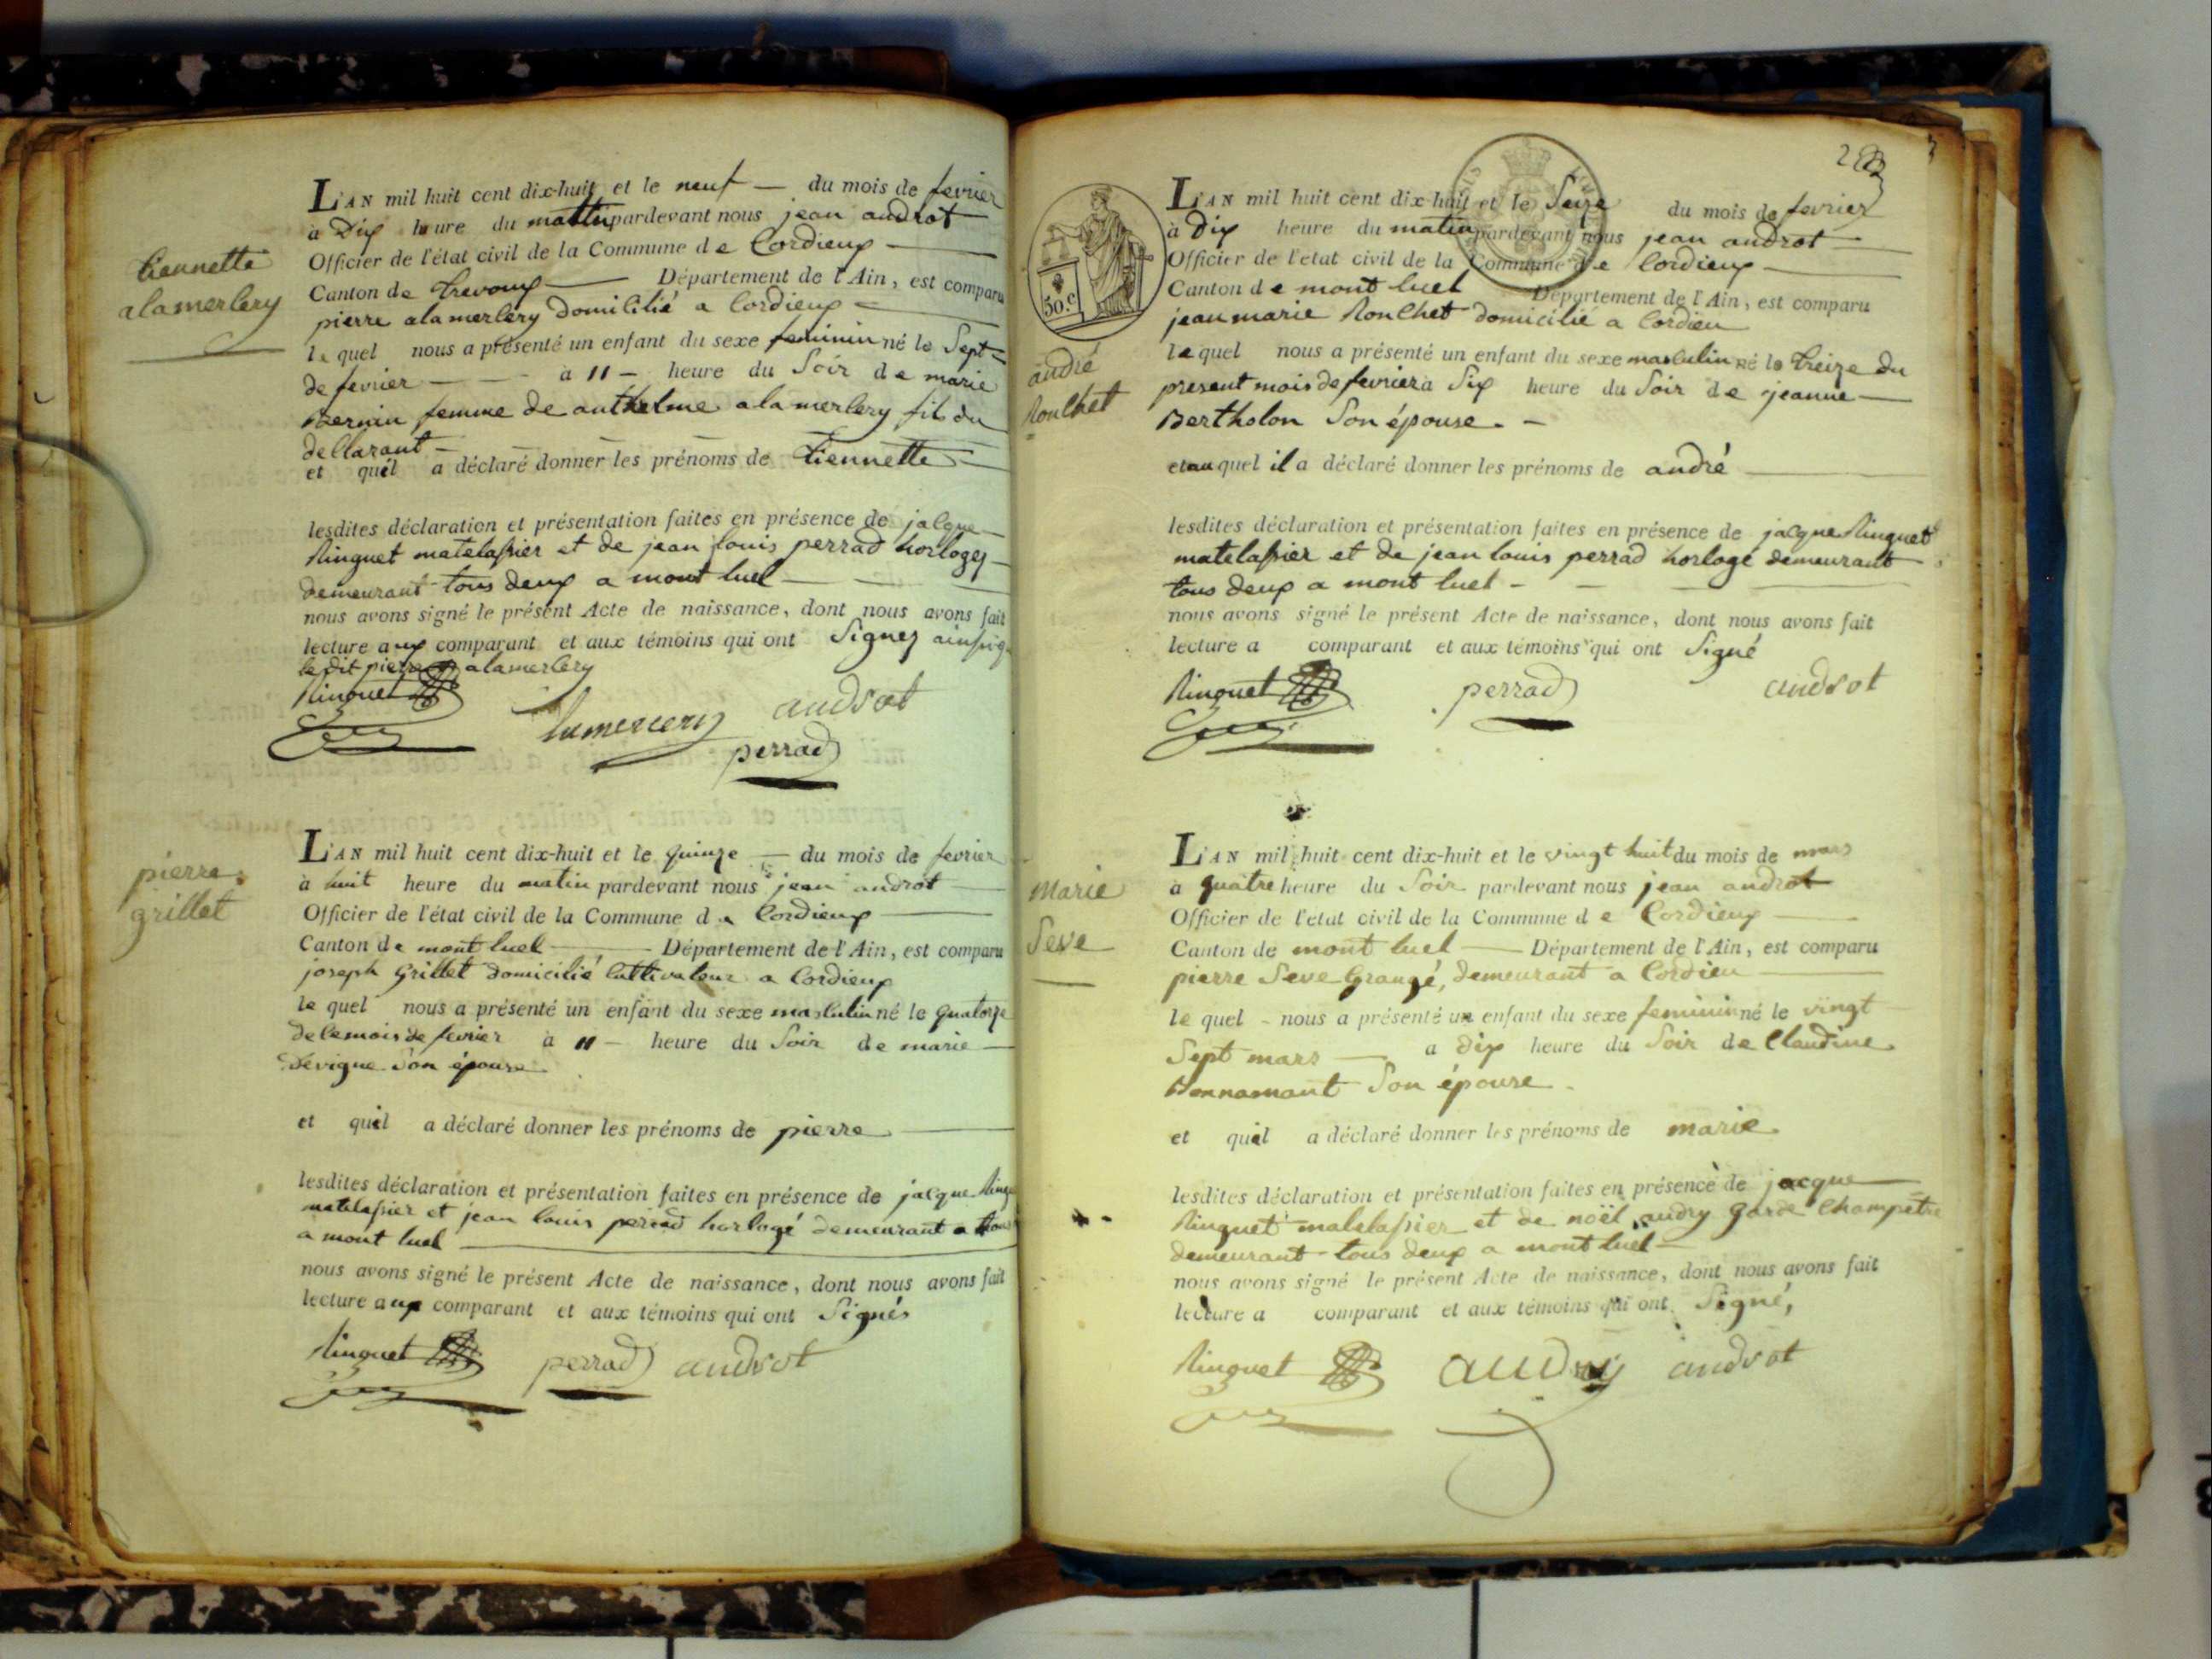 tiennette
alamerlery
L'AN mil huit cent dix-huit et le neuf — du mois de fevrier
à Dix heure du matin pardevant nous jean androt
Officier de l'état civil de la Commune de Cordieux
Canton de trevoux — Département de l'Ain, est comparu
pierre alamerlery domicilié a Cordieux
le quel nous a présenté un enfant du sexe feminin né le Sept
de fevrier — à 11 — heure du Soir de marie
femme de anthelme alamerlery fils du
declarant
et quil a déclaré donner les prénoms de tiennette
lesdites déclaration et présentation faites en présence de jacque
Ringuet matelassier et de jean louis perrad horloger
demeurant tous deux a mont luel
nous avons signé le présent Acte de naissance, dont nous avons fait
lecture aux comparant et aux témoins qui ont Signez ainsi q
le dit pierre alamerlery
Ringuet
lamerlery
androt
perrad
pierre
grillet
L'AN mil huit cent dix-huit et le quinze — du mois de fevrier
à huit heure du matin pardevant nous jean androt
Officier de l'état civil de la Commune de Cordieux
Canton de mont luel — Département de l'Ain, est comparu
joseph Grillet domicilié Cultivateur a Cordieux
le quel nous a présenté un enfant du sexe masculin né le quatorze
de ce mois de fevrier à 11 — heure du Soir de marie
Sevigne Son épouse
et quil a déclaré donner les prénoms de pierre
lesdites déclaration et présentation faites en présence de jacque Ringu
matelassier et jean louis perrad horlogé demeurant a tous
a mont luel
nous avons signé le présent Acte de naissance, dont nous avons fait
lecture aux comparant et aux témoins qui ont Signés
Ringuet perrad androt
50.c
andré
Rouchet
L'AN mil huit cent dix-huit et le Seize du mois de fevrier
à Dix heure du matin pardevant nous jean androt
Officier de l'etat civil de la Commune de Cordieux
Canton de mont luel Département de l'Ain, est comparu
jean marie Rouchet domicilié a Cordieu
le quel nous a présenté un enfant du sexe masculin né le treize du
present mois de fevrier à Six heure du Soir de jeanne
Bertholon Son épouse. —
et au quel il a déclaré donner les prénoms de andré
lesdites déclaration et présentation faites en présence de jacque Ringuet
matelassier et de jean louis perrad horlogé demeurant
tous deux a mont luel —
nous avons signé le présent Acte de naissance, dont nous avons fait
lecture a comparant et aux témoins qui ont Signé
Ringuet perrad androt
Marie
Seve
L'AN mil huit cent dix-huit et le vingt huit du mois de mars
à quatre heure du Soir pardevant nous jean androt
Officier de l'etat civil de la Commune de Cordieux
Canton de mont luel — Département de l'Ain, est comparu
pierre Seve Grangé, demeurant a Cordieu
le quel - nous a présenté un enfant du sexe feminin né le vingt
Sept mars — a dix heure du Soir de Claudine
Bonnamant Son épouse -
et quil a déclaré donner les prénoms de marie
lesdites déclaration et présentation faites en présence de jacque
Ringuet matelassier et de noël audry garde Champetre
demeurant tous deux a mont luel
nous avons signé le présent Acte de naissance, dont nous avons fait
lecture a comparant et aux témoins qui ont Signé,
Ringuet audry androt